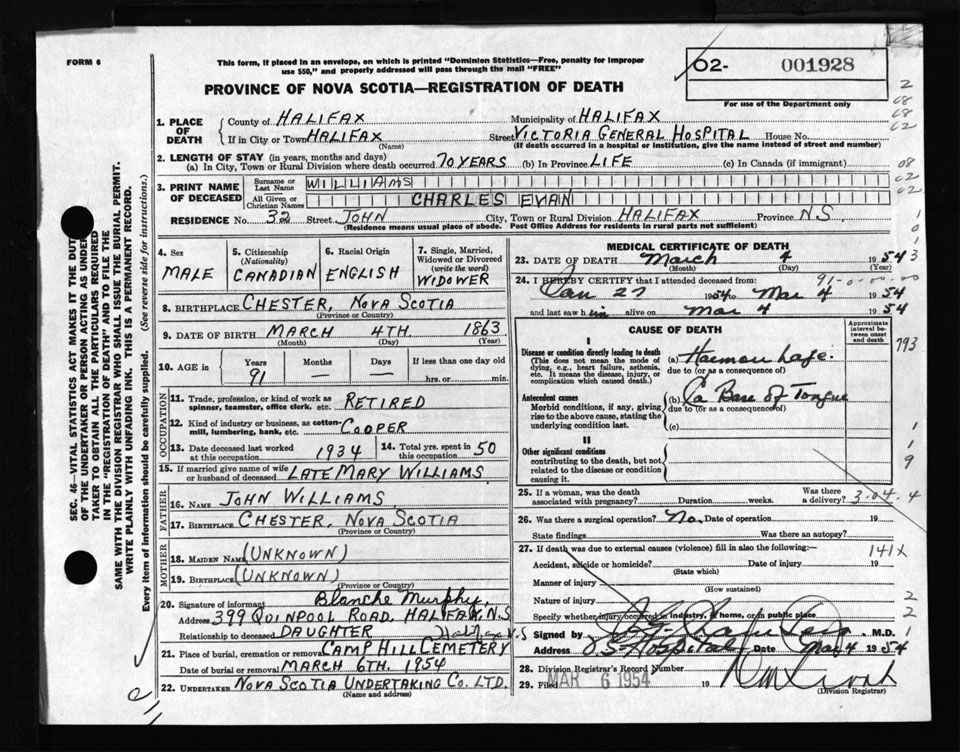 FORM 6
This form, if placed in an envelope, on which is printed "Dominion Statistics—Free, penalty for improper
use $50," and properly addressed will pass through the mail "FREE"
02- 001928
PROVINCE OF NOVA SCOTIA—REGISTRATION OF DEATH
For use of the Department only
1. PLACE OF DEATH
County of HALIFAX Municipality of HALIFAX
If in City or Town HALIFAX (Name) Street VICTORIA GENERAL HOSPITAL House No.
(If death occurred in a hospital or institution, give the name instead of street and number)
2. LENGTH OF STAY (in years, months and days)
(a) In City, Town or Rural Division where death occurred 70 YEARS (b) In Province LIFE (c) In Canada (if immigrant)
3. PRINT NAME OF DECEASED
Surname or Last Name WILLIAMS
All Given or Christian Names CHARLES EVAN
RESIDENCE No. 32 Street JOHN City, Town or Rural Division HALIFAX Province N.S.
(Residence means usual place of abode. Post Office Address for residents in rural parts not sufficient)
4. Sex MALE
5. Citizenship (Nationality) CANADIAN
6. Racial Origin ENGLISH
7. Single, Married, Widowed or Divorced (write the word) WIDOWER
8. BIRTHPLACE CHESTER, NOVA SCOTIA
(Province or Country)
9. DATE OF BIRTH MARCH 4TH. 1863
(Month) (Day) (Year)
10. AGE in Years 91 Months — Days — If less than one day old hrs. or min.
OCCUPATION
11. Trade, profession, or kind of work as spinner, teamster, office clerk, etc. RETIRED
12. Kind of industry or business, as cotton-mill, lumbering, bank, etc. COOPER
13. Date deceased last worked at this occupation 1934
14. Total yrs. spent in this occupation 50
15. If married give name of wife or husband of deceased LATE MARY WILLIAMS
FATHER
16. NAME JOHN WILLIAMS
17. BIRTHPLACE CHESTER, NOVA SCOTIA
(Province or Country)
MOTHER
18. MAIDEN NAME (UNKNOWN)
19. BIRTHPLACE (UNKNOWN)
(Province or Country)
20. Signature of informant Blanche Murphy,
Address 399 QUINPOOL ROAD, HALIFAX, N.S
Relationship to deceased DAUGHTER Halifax N.S
21. Place of burial, cremation or removal CAMP HILL CEMETERY
Date of burial or removal MARCH 6TH. 1954
22. UNDERTAKER NOVA SCOTIA UNDERTAKING CO. LTD.
(Name and address)
MEDICAL CERTIFICATE OF DEATH
23. DATE OF DEATH March 4 1954
(Month) (Day) (Year)
24. I HEREBY CERTIFY that I attended deceased from: 91-0-00-00
Jan 27 1954 to Mar 4 1954
and last saw him alive on Mar 4 1954
CAUSE OF DEATH
Approximate interval between onset and death
I
Disease or condition directly leading to death
(This does not mean the mode of dying, e.g., heart failure, asthenia, etc. It means the disease, injury, or complication which caused death.)
(a)
due to (or as a consequence of)
Antecedent causes
Morbid conditions, if any, giving rise to the above cause, stating the underlying condition last.
(b) Ca Base of Tongue
due to (or as a consequence of)
(c)
II
Other significant conditions
contributing to the death, but not related to the disease or condition causing it.
25. If a woman, was the death associated with pregnancy? Duration weeks. Was there a delivery? 3-04-4
26. Was there a surgical operation? No. Date of operation 19
State findings Was there an autopsy?
27. If death was due to external causes (violence) fill in also the following:— 141X
Accident, suicide or homicide? (State which) Date of injury 19
Manner of injury (How sustained)
Nature of injury
Specify whether injury occurred in industry, in home, or in public place
Signed by M.D.
Address V.G. Hospital Date Mar 4 1954
28. Division Registrar's Record Number
29. Filed MAR 6 1954 19
(Division Registrar)
SEC. 46—VITAL STATISTICS ACT MAKES IT THE DUTY
OF THE UNDERTAKER OR PERSON ACTING AS UNDER-
TAKER TO OBTAIN ALL THE PARTICULARS REQUIRED
IN THE "REGISTRATION OF DEATH" AND TO FILE THE
SAME WITH THE DIVISION REGISTRAR WHO SHALL ISSUE THE BURIAL PERMIT.
WRITE PLAINLY WITH UNFADING INK. THIS IS A PERMANENT RECORD.
Every item of information should be carefully supplied. (See reverse side for instructions.)
2
68
68
62
08
62
62
1
0
1
3
793
1
1
9
2
2
1